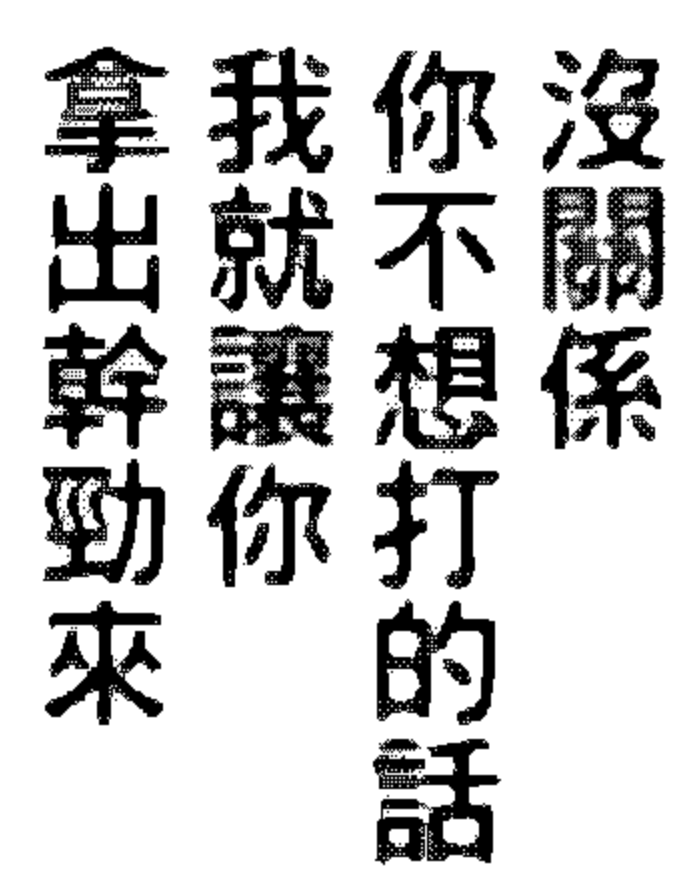 沒關係
你不想打的話
我就讓你
拿出幹勁來